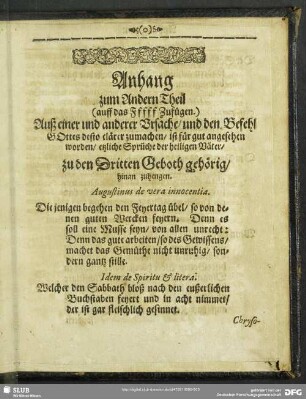 (o)
Anhang
zum Andern Theil
(auff das Fffff Zufügen.)
Auß einer und anderer Ursache/ und den Befehl
GOttes desto klärer zumachen/ ist für gut angesehen
worden/ etzliche Sprüche der heiligen Väter/
zu den Dritten Geboth gehörig/
hinan zuhengen.
Augustinus de vera innocentia.
Die jenigen begehen den Feyertag übel/ so von de-
nen guten Wercken feyern. Denn es
soll eine Musse seyn/ von allen unrecht:
Denn das gute arbeiten/ so des Gewissens/
machet das Gemüthe nicht unruhig/ son-
dern gantz stille.
Idem de Spiritu & litera.
Welcher den Sabbath bloß nach den eußerlichen
Buchstaben feyert und in acht nimmet/
der ist gar fleischlich gesinnet.
Chryso-
SLUB
DFG